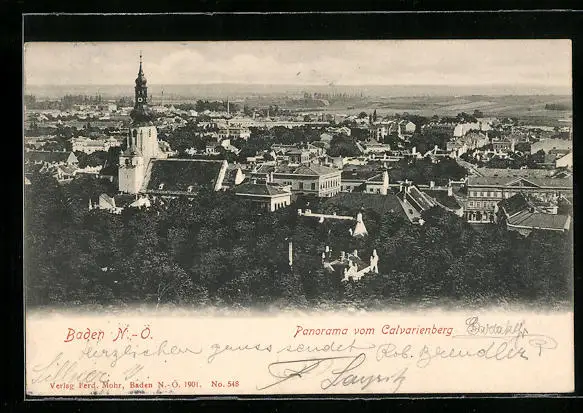 Baden N.-Ö.
Panorama vom Calvarienberg
herzlichen gruss sendet Rob. Brendler
Verlag Ferd. Mohr, Baden N.-Ö. 1901. No. 548